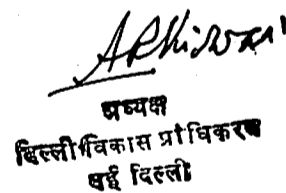 अध्यक्ष
दिल्ली विकास प्राधिकरण
नई दिल्ली